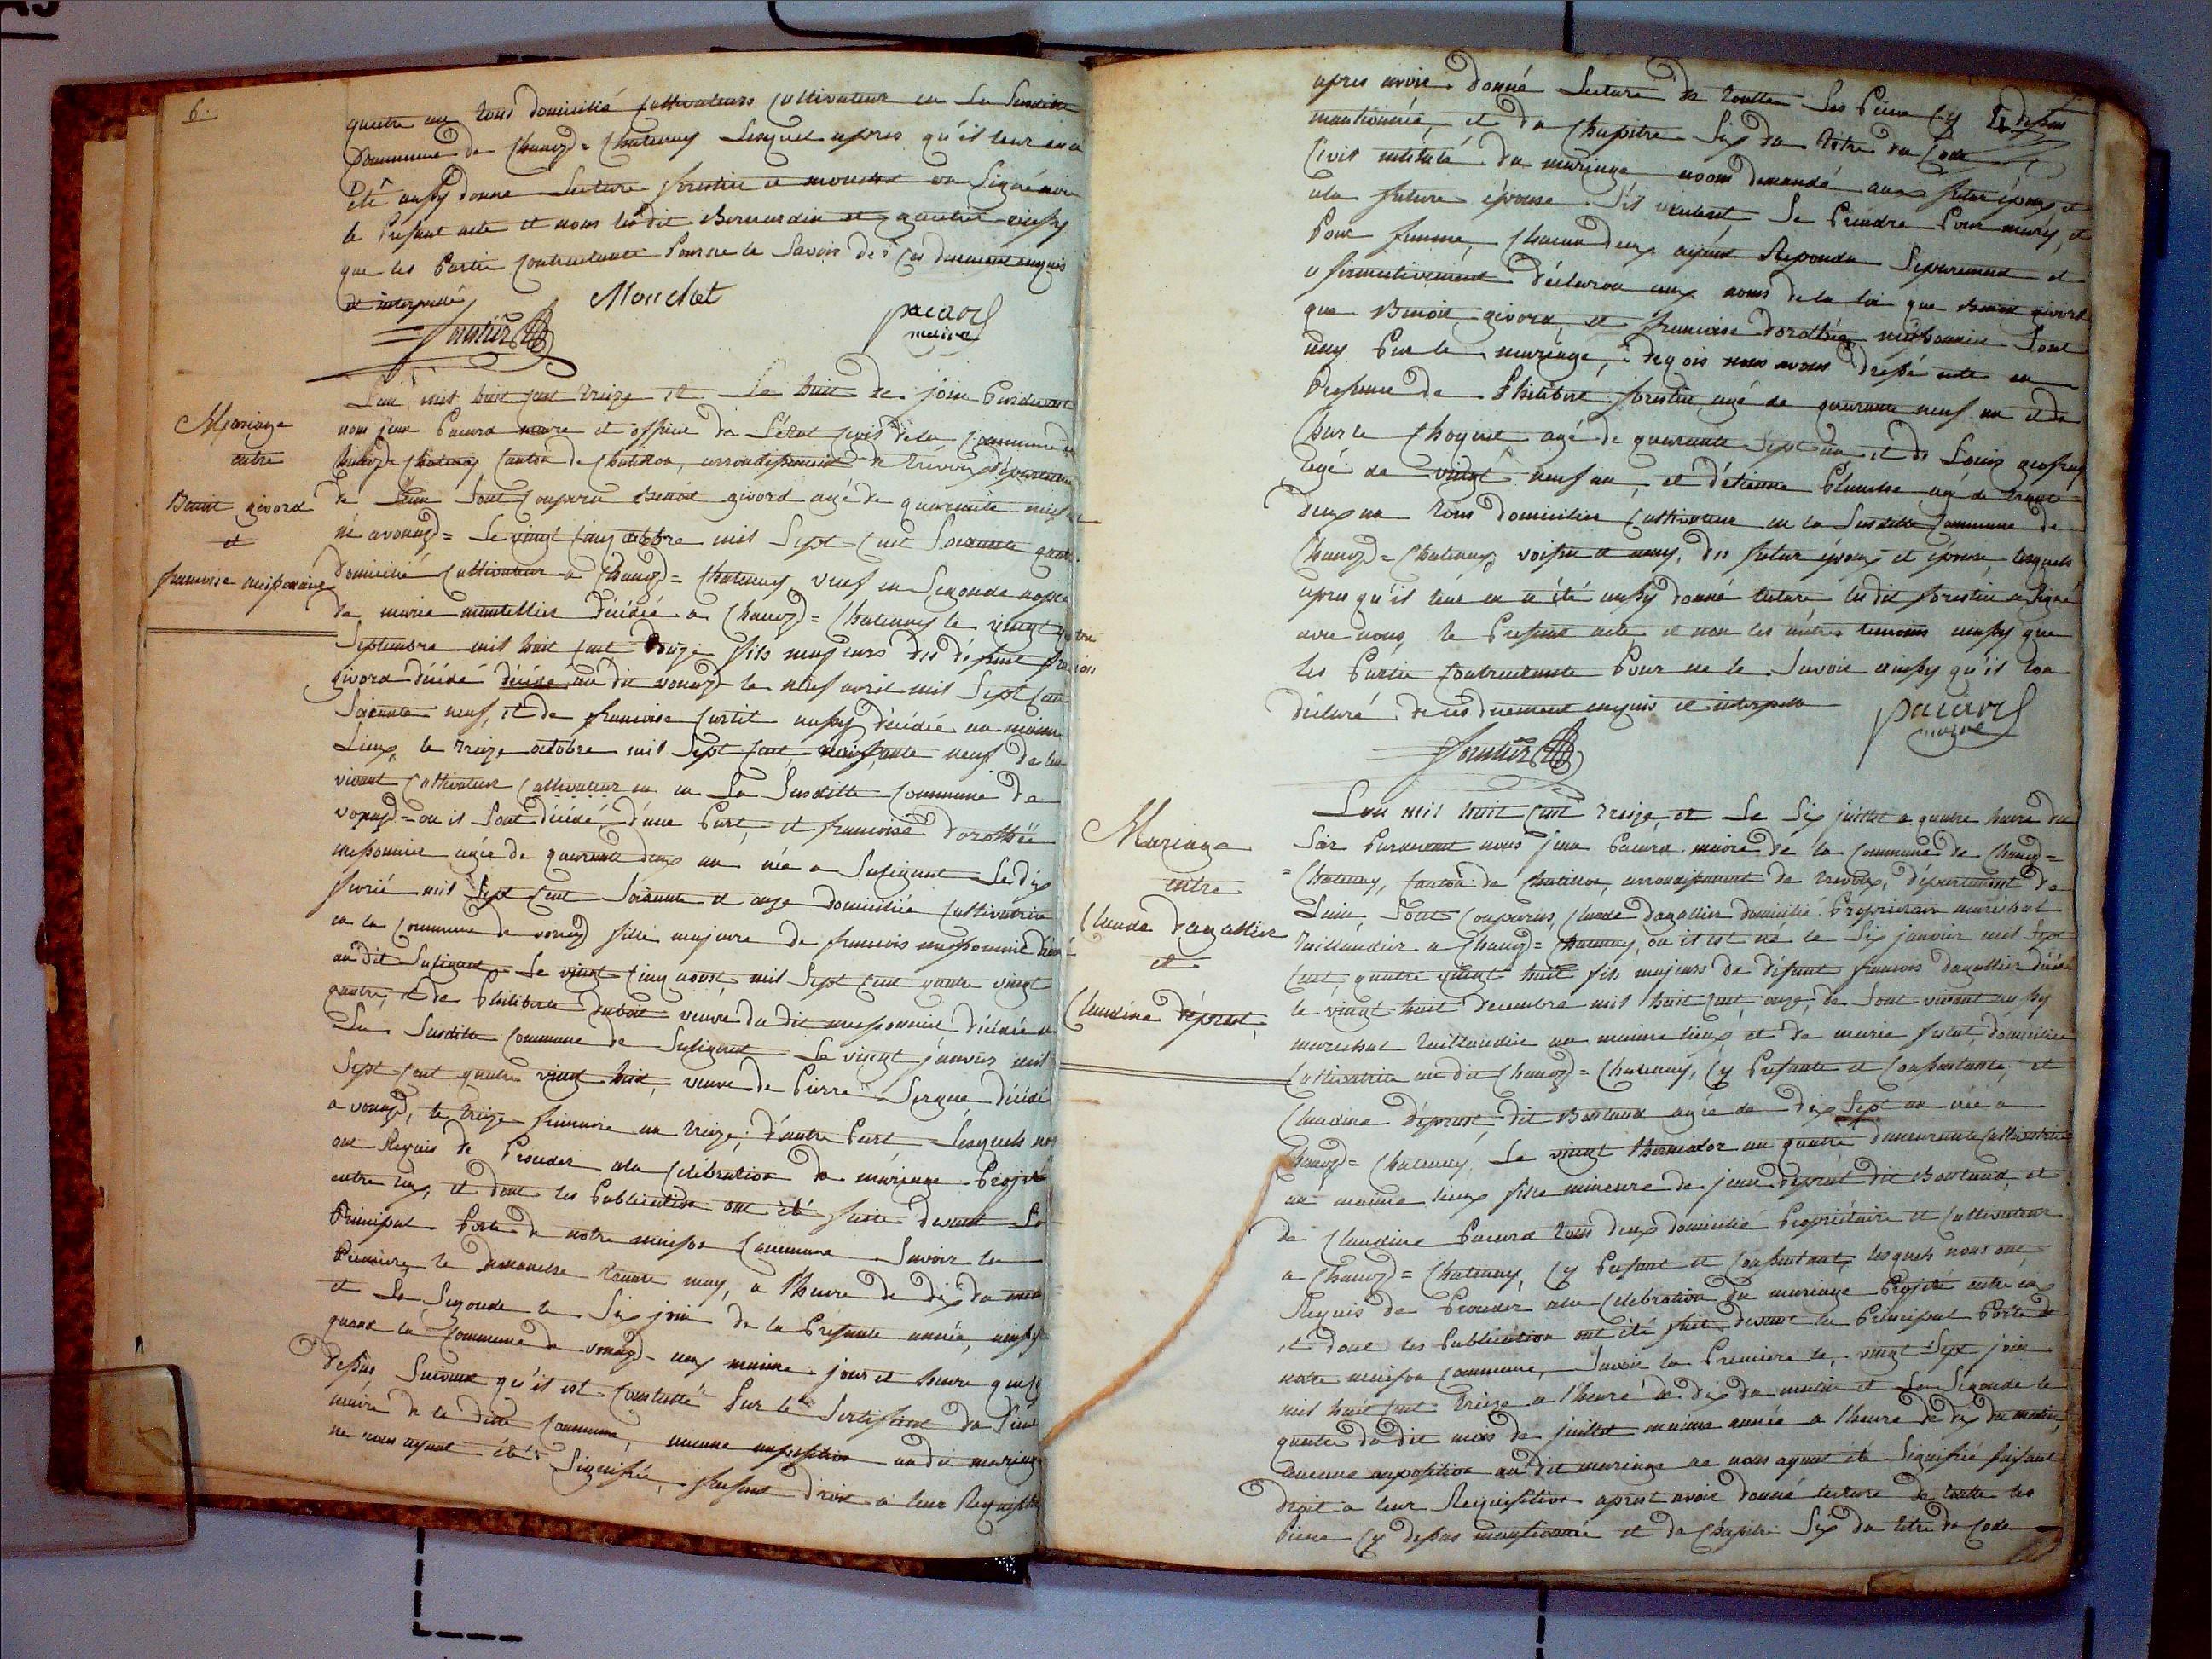 6.
quatre an tous domicilié Cultivateurs Cultivateur en La Susditte
Commune de Chanoz=Chatenay Lesquel apres qu'il leur en a
été aussy donné Lecture forestier et mouchet on Signé avec
le Presant acte et nous les dit Bernardin et gautier ainssy
que les Partie Contractante Pour ne le Savoir de Ces duement enquis
et interpellé
Mouchet
forestier
pacard
maire
Mariage
entre
Benoit givord
et
francoise messonnier
L'an mil huit Cent treize et Le huit de join Pardevant
nous jean Pacard maire et officier de L'état Civis de la Commune de
Chanoz=Chatenay Canton de Chatillon, arrondissement de trévoux département
de Lain Sont Comparu Benoit givord agé de quarante neuf an
né a vonnaz= Le vingt Cinq octobre mil Sept Cent Soixante
domicilié Cultivateur a Chanoz=Chatenay veuf en Segonde nopce
de marie décédée a Chanoz=Chatenay le vingt quatre
Septembre mil huit Cent douze fils majeurs des défunt
givord décédé décédé au dit vonnaz le neuf avril mil Sept Cent
Soixante neuf, et de francoise Curtil aussy décédée au maime
Lieux, le treize octobre mil Sept Cent neuf de leur
vivant Cultivateur Cultivateur en La Susditte Commune de
vonnaz=ou il Sont décédé d'une Part, et francoise dorothée
messonnier agée de quarante deux an née a Suligniat Le dix
fevrié mil Sept Cent Soixante et onze domiciliée Cultivatrice
en la Commune de vonnaz fille majeure de francois messonnier décédé
au dit Suligniat Le vingt Cinq aoust mil Sept Cent quatre vingt
quatre, et de Philiberte dubost veuve du dit messonnier décédée a
La Susditte Commune de Suligniat Le vingt janvier mil
Sept Cent quatre vingt huit, veuve de Pierre décédé
a vonnaz, le treize frimaire an treize, d'autre Part, Lesquels nous
ont Requis de Proceder ala Celébration du mariage Projeté
entre eux, et dont les Publication ont été faite devant La
Principal Porte de notre maison Commune Savoir la
Premiere le dimanche trante may, a l'heure de dix du matin
et La Segonde le Six join de la Presante année, ainssy
quand la Commune de vonnaz= aux maime jour et heure que Cy
dessus Suivant qu'il est Constatté Par le Sertificat du Sieur
maire de la ditte Commune, aucune oposition au dit mariage
ne nous ayant été Signifiée, faisant droit a leur Requisition
4
apres avoir donné Lecture de toutte Les Piece Cy dessus
mantionnée, et du Chapitre Six du titre du Code
Civil intitulé du mariage avons demandé aux futur époux et
ala future épouse S'il veulent Se Prendre Pour mary, et
Pour femme, Chacun deux ayant Repondu Separement et
afirmativement déclaron aux noms de la loi que Benoit givord
que Benoit givord, et francoise dorothée messonnier Sont
uny Par le mariage, de quois nous avons dressé acte en
Presence de Philibert forestier agé de quarante neuf an et de
Charle Choquet agé de quarante Sept an et de Louis
agé de vingt neuf an, et d'étienne Planche agé de trante
deux an tous domicilier Cultivateur en la Susditte Commune de
Chanoz=Chatenay, voisin et amy, des futur époux et épouse lesquels
apres qu'il leur en a été aussy donné lecture, les dit forestier a Signé
avec nous, le Presant acte et non les autres temoins ainssy que
les Partie Contractante Pour ne le Savoir ainssy qu'il lon
déclaré de ces duement enquis et interpellé
forestier
pacard
maire
Mariage
entre
Claude dagallier
et
Claudine déprost
L'an mil huit Cent treize, et Le Six juillet a quatre heure du
Soir Pardevant nous jean Pacard maire de la Commune de Chanoz=
=Chatenay, Canton de Chatillon, arrondissement de trevoux, département de
Lain, Sont Comparus, Claude dagallier domicilié Propriétaire maréchal
taillandier a Chanoz=Chatenay, ou il est né le Six janvier mil Sept
Cent, quatre vingt huit fils majeurs de défunt francois dagallier décédé
le vingt huit decembre mil huit Cent onze, de Sont vivant aussy
marechal taillandier au maime lieux, et de marie domiciliée
Cultivatrice au dit Chanoz=Chatenay, Cy Presante et Consantante, et
Claudine déprost dit Barland agée de dix Sept an née a
Chanoz=Chatenay, Le vingt thermidor an quatre demeurante Cultivatrice
au maime lieux fille mineure de jean deprost dit Barland, et
de Claudine Pacard tous deux domicilié Propriétaire et Cultivateur
a Chanoz=Chatenay, Cy Presant et Consantant, lesquels nous ont
Requis de Proceder ala Celebration du mariage Projeté entre eux
et dont les Publication ont été faite devant la Principal Porte de
notre maison Commune, Savoir la Premiere le, vingt Sept join
mil huit Cent treize a l'heure de dix du matin et La Segonde le
quatre du dit mois de juillet maime année a l'heure de dix du matin,
aucune oposition au dit mariage ne nous ayant été Signifiée faisant
droit a leur Requisition aprest avoir donné lecture de toutte les
Piece Cy dessus mantionnée et du Chapitre Six du titre du Code